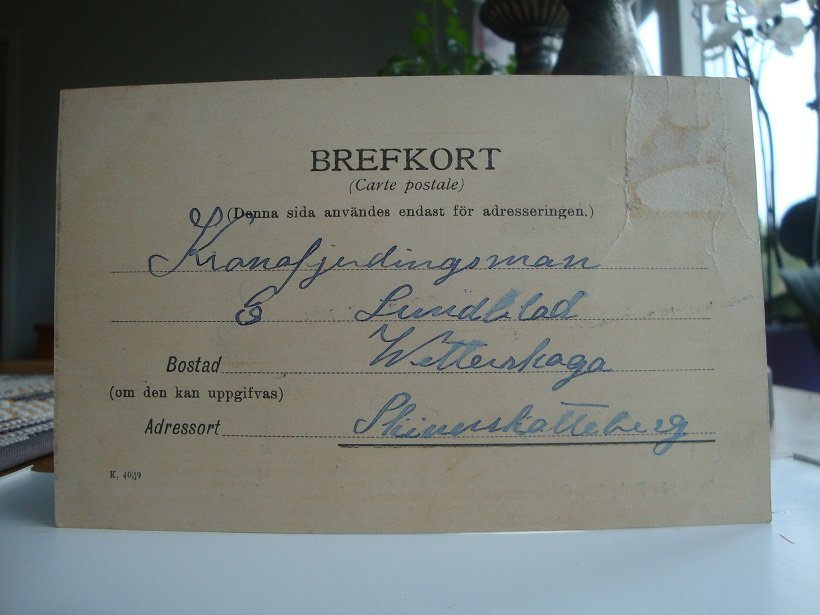 BREFKORT
(Carte postale)
(Denna sida användes endast för adresseringen.)
Kronofjerdingsman
E Lundblad
Bostad Wetterskoga
(om den kan uppgifvas)
Adressort Skinnskatteberg